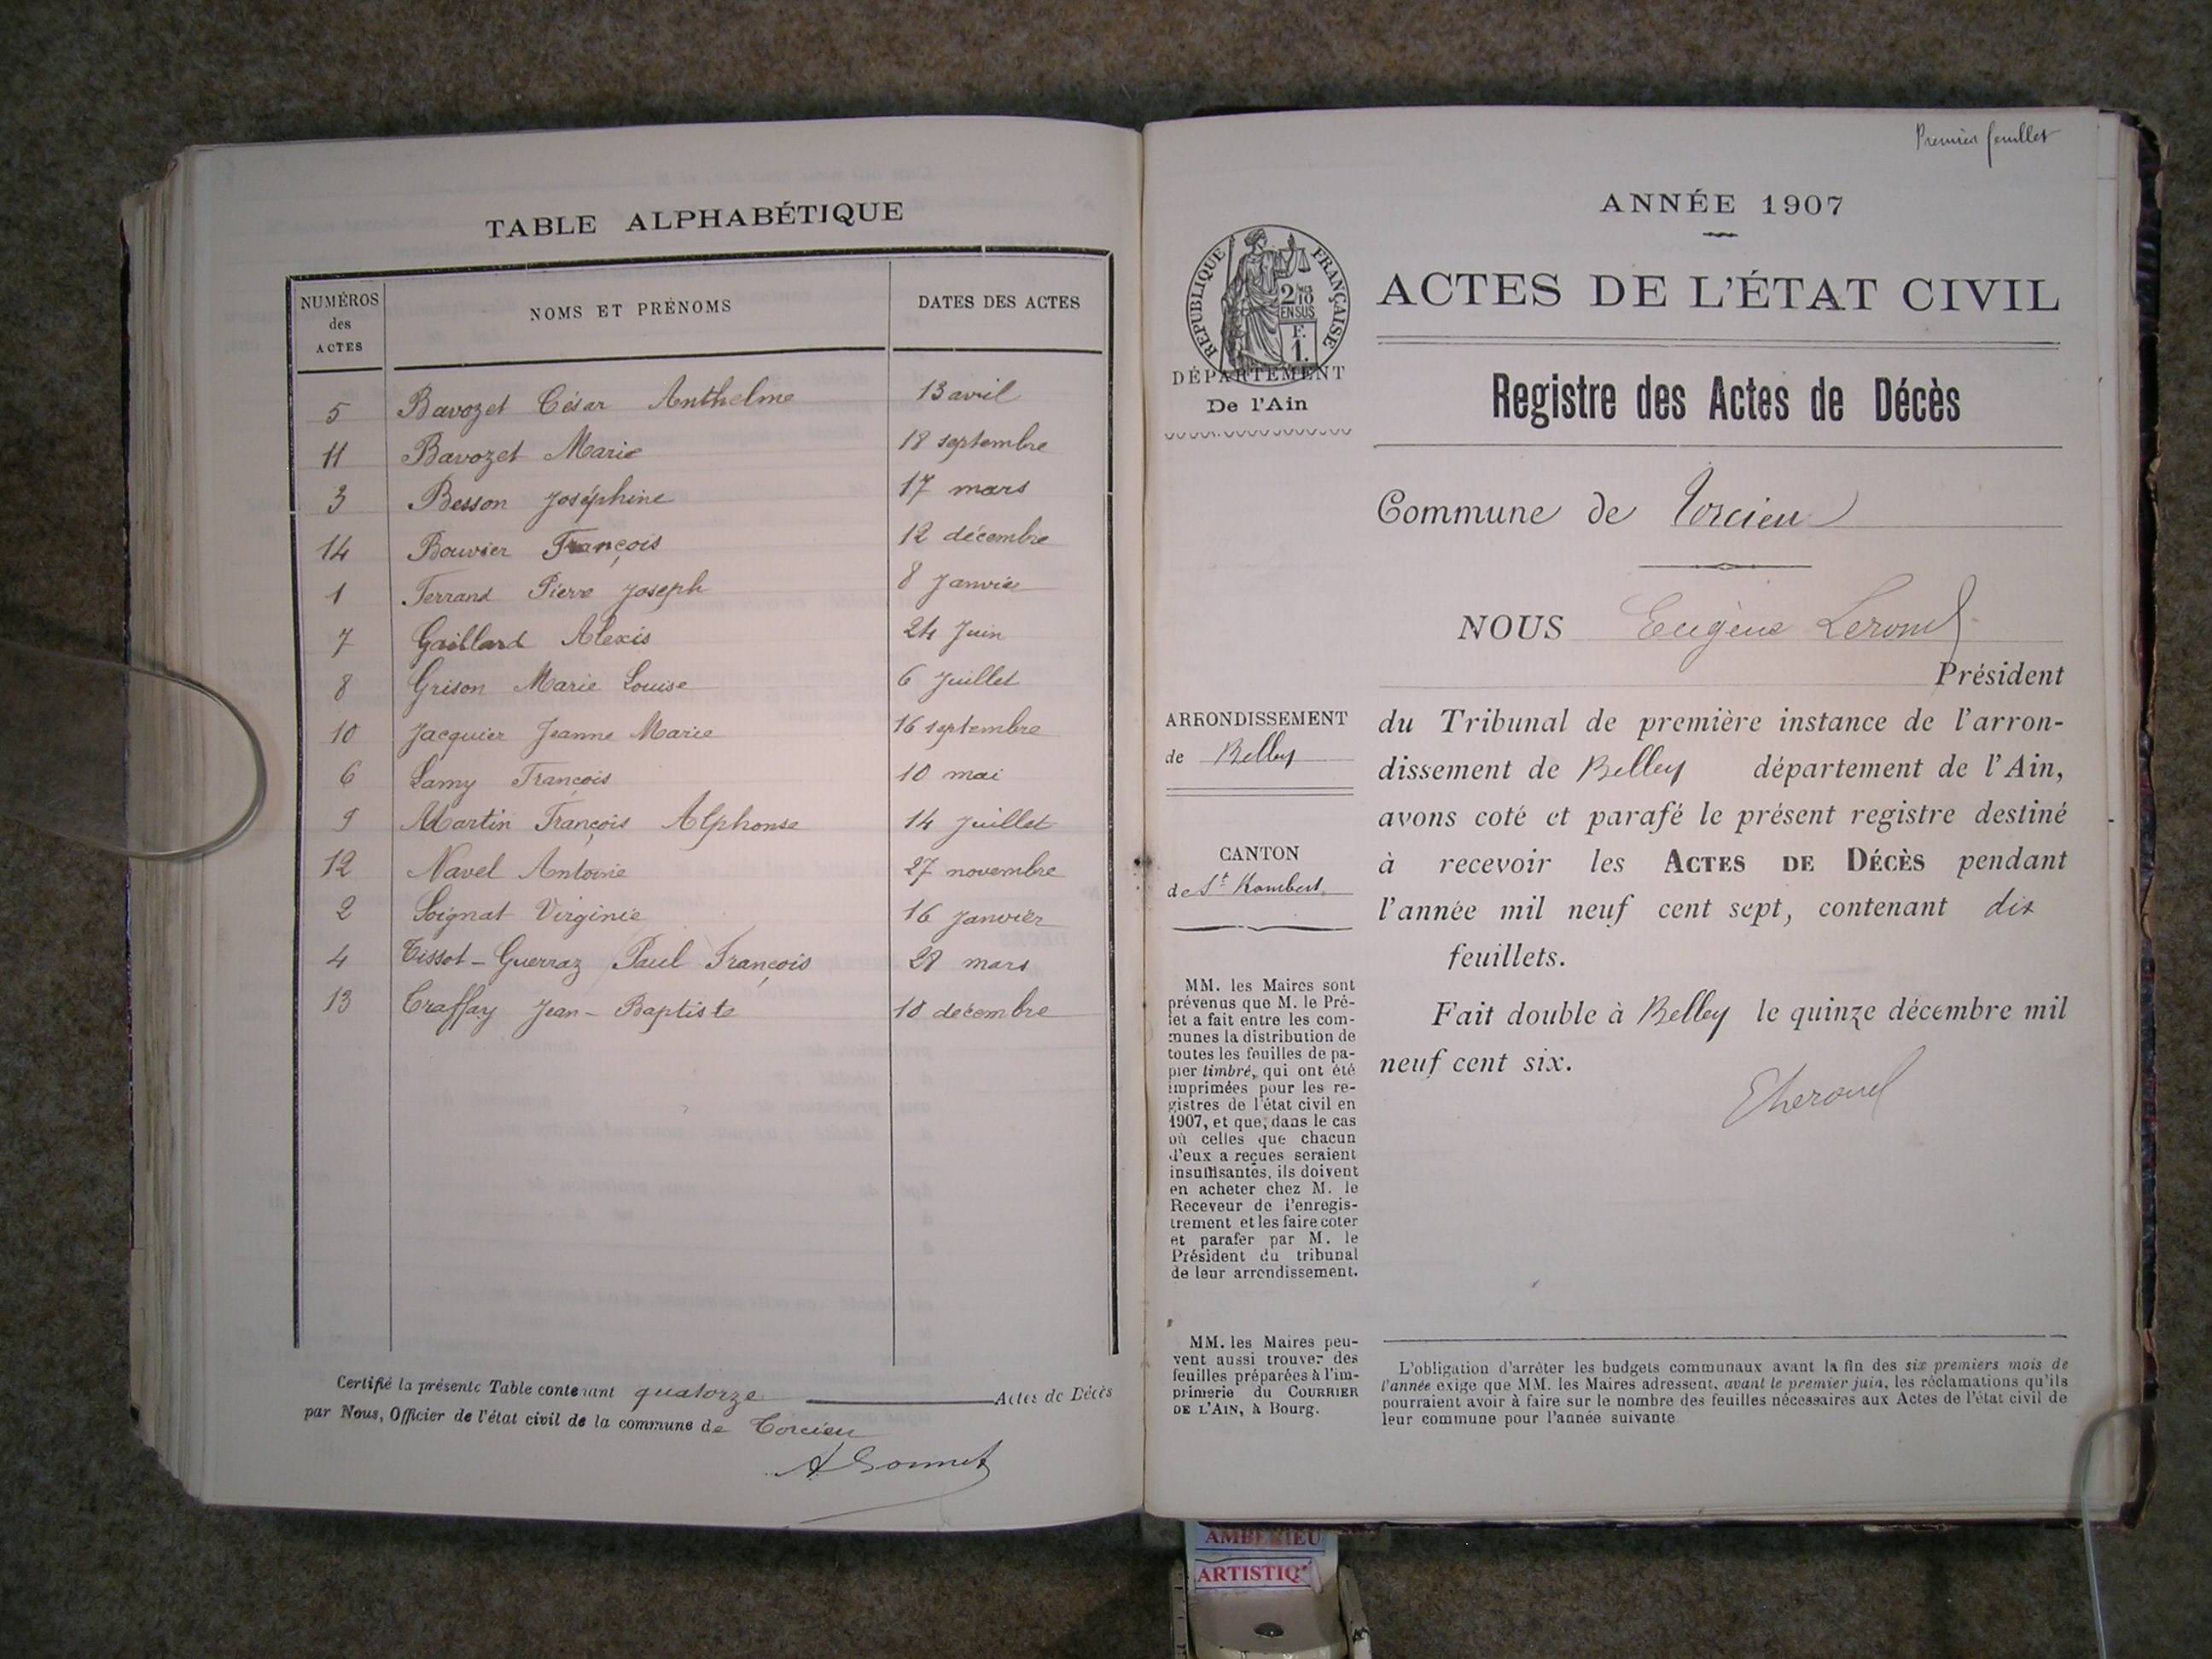 TABLE ALPHABÉTIQUE
NUMÉROS des ACTES NOMS ET PRÉNOMS DATES DES ACTES
5 Bavozet César Anthelme 13 avril
11 Bavozet Marie 18 septembre
3 Besson Joséphine 17 mars
14 Bouvier François 12 décembre
1 Ferrand Pierre Joseph 8 Janvier
7 Gaillard Alexis 24 Juin
8 Grison Marie Louise 6 Juillet
10 Jacquier Jeanne Marie 16 septembre
6 Lamy François 10 mai
9 Martin François Alphonse 14 Juillet
12 Navel Antoine 27 novembre
2 Soignat Virginie 16 Janvier
4 Tissot-Guerraz Paul François 28 mars
13 Traffay Jean-Baptiste 10 décembre
Certifié la présente Table contenant quatorze Actes de Décès
par Nous, Officier de l'état civil de la commune de Torcieu
Premier feuillet
ANNÉE 1907
RÉPUBLIQUE FRANÇAISE
2/10
EN SUS
F.
1.
DÉPARTEMENT
De l'Ain
ACTES DE L'ÉTAT CIVIL
Registre des Actes de Décès
Commune de Torcieu
NOUS Eugène
Président
ARRONDISSEMENT
de Belley
CANTON
de St Rambert
du Tribunal de première instance de l'arron-
dissement de Belley département de l'Ain,
avons coté et parafé le présent registre destiné
à recevoir les ACTES DE DÉCÈS pendant
l'année mil neuf cent sept, contenant dix
feuillets.
Fait double à Belley le quinze décembre mil
neuf cent six.
MM. les Maires sont
prévenus que M. le Pré-
fet a fait entre les com-
munes la distribution de
toutes les feuilles de pa-
pier timbré, qui ont été
imprimées pour les re-
gistres de l'état civil en
1907, et que, dans le cas
où celles que chacun
d'eux a reçues seraient
insuffisantes, ils doivent
en acheter chez M. le
Receveur de l'enregis-
trement et les faire coter
et parafer par M. le
Président du tribunal
de leur arrondissement.
MM. les Maires peu-
vent aussi trouver des
feuilles préparées à l'im-
primerie du COURRIER
DE L'AIN, à Bourg.
L'obligation d'arrêter les budgets communaux avant la fin des six premiers mois de
l'année exige que MM. les Maires adressent, avant le premier juin, les réclamations qu'ils
pourraient avoir à faire sur le nombre des feuilles nécessaires aux Actes de l'état civil de
leur commune pour l'année suivante.
AMBERIEU
ARTISTIQ